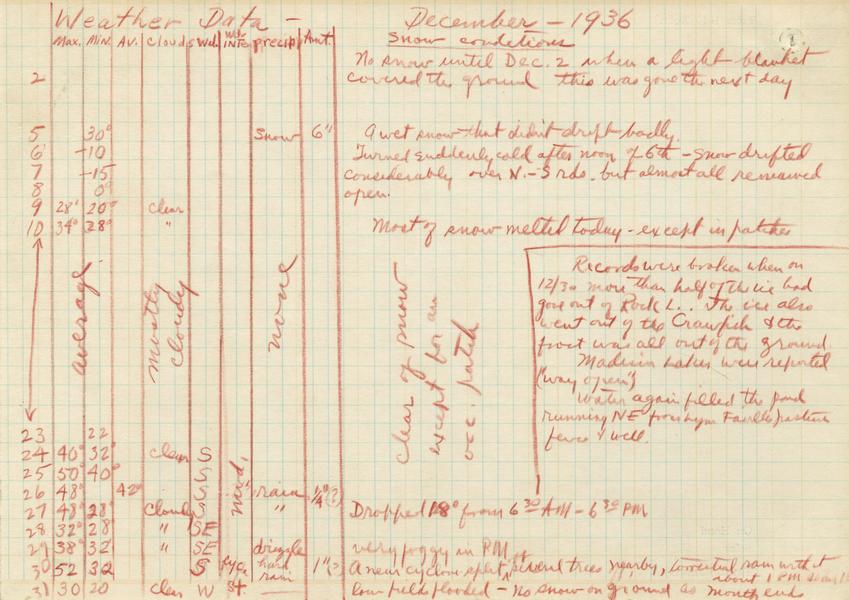 Weather Data – December – 1936
Max. Min. Av. Clouds Wd. Wd. INTS precip Amt. Snow conditions
No snow until Dec. 2 when a light blanket
2 covered the ground this was gone the next day
5 30° Snow 6" A wet snow that didn't drift badly.
6 -10 Turned suddenly cold after noon of 6th – snow drifted
7 -15 considerably over N.-S rds. but almost all remained
8 0° open.
9 28° 20° clear
10 34° 28° " Most of snow melted today – except in patches
average
mostly
cloudy
none
clear of snow
except for an
occ. patch
Records were broken when on
12/30 more than half of the ice had
gone out of Rock L.. The ice also
went out of the Crawfish & the
frost was all out of the ground
Madison Lakes were reported
("way open")
Water again filled the pond
running NE from pasture
fence & well.
23 22
24 40° 32° clear S
25 50° 40° S
26 48° 42° S mod. rain 1/4 (?)
27 48° 28° Cloudy S " Dropped 18° from 6 30 AM – 6 30 PM
28 32° 28° " SE
29 38° 32° " SE drizzle very foggy in PM
30 52 32 S hard rain 1" (?) A near cyclone split several trees nearby, torrential rain with it
about 1 PM
31 30 20 clear W St. — low fields flooded – No snow on ground as month ends